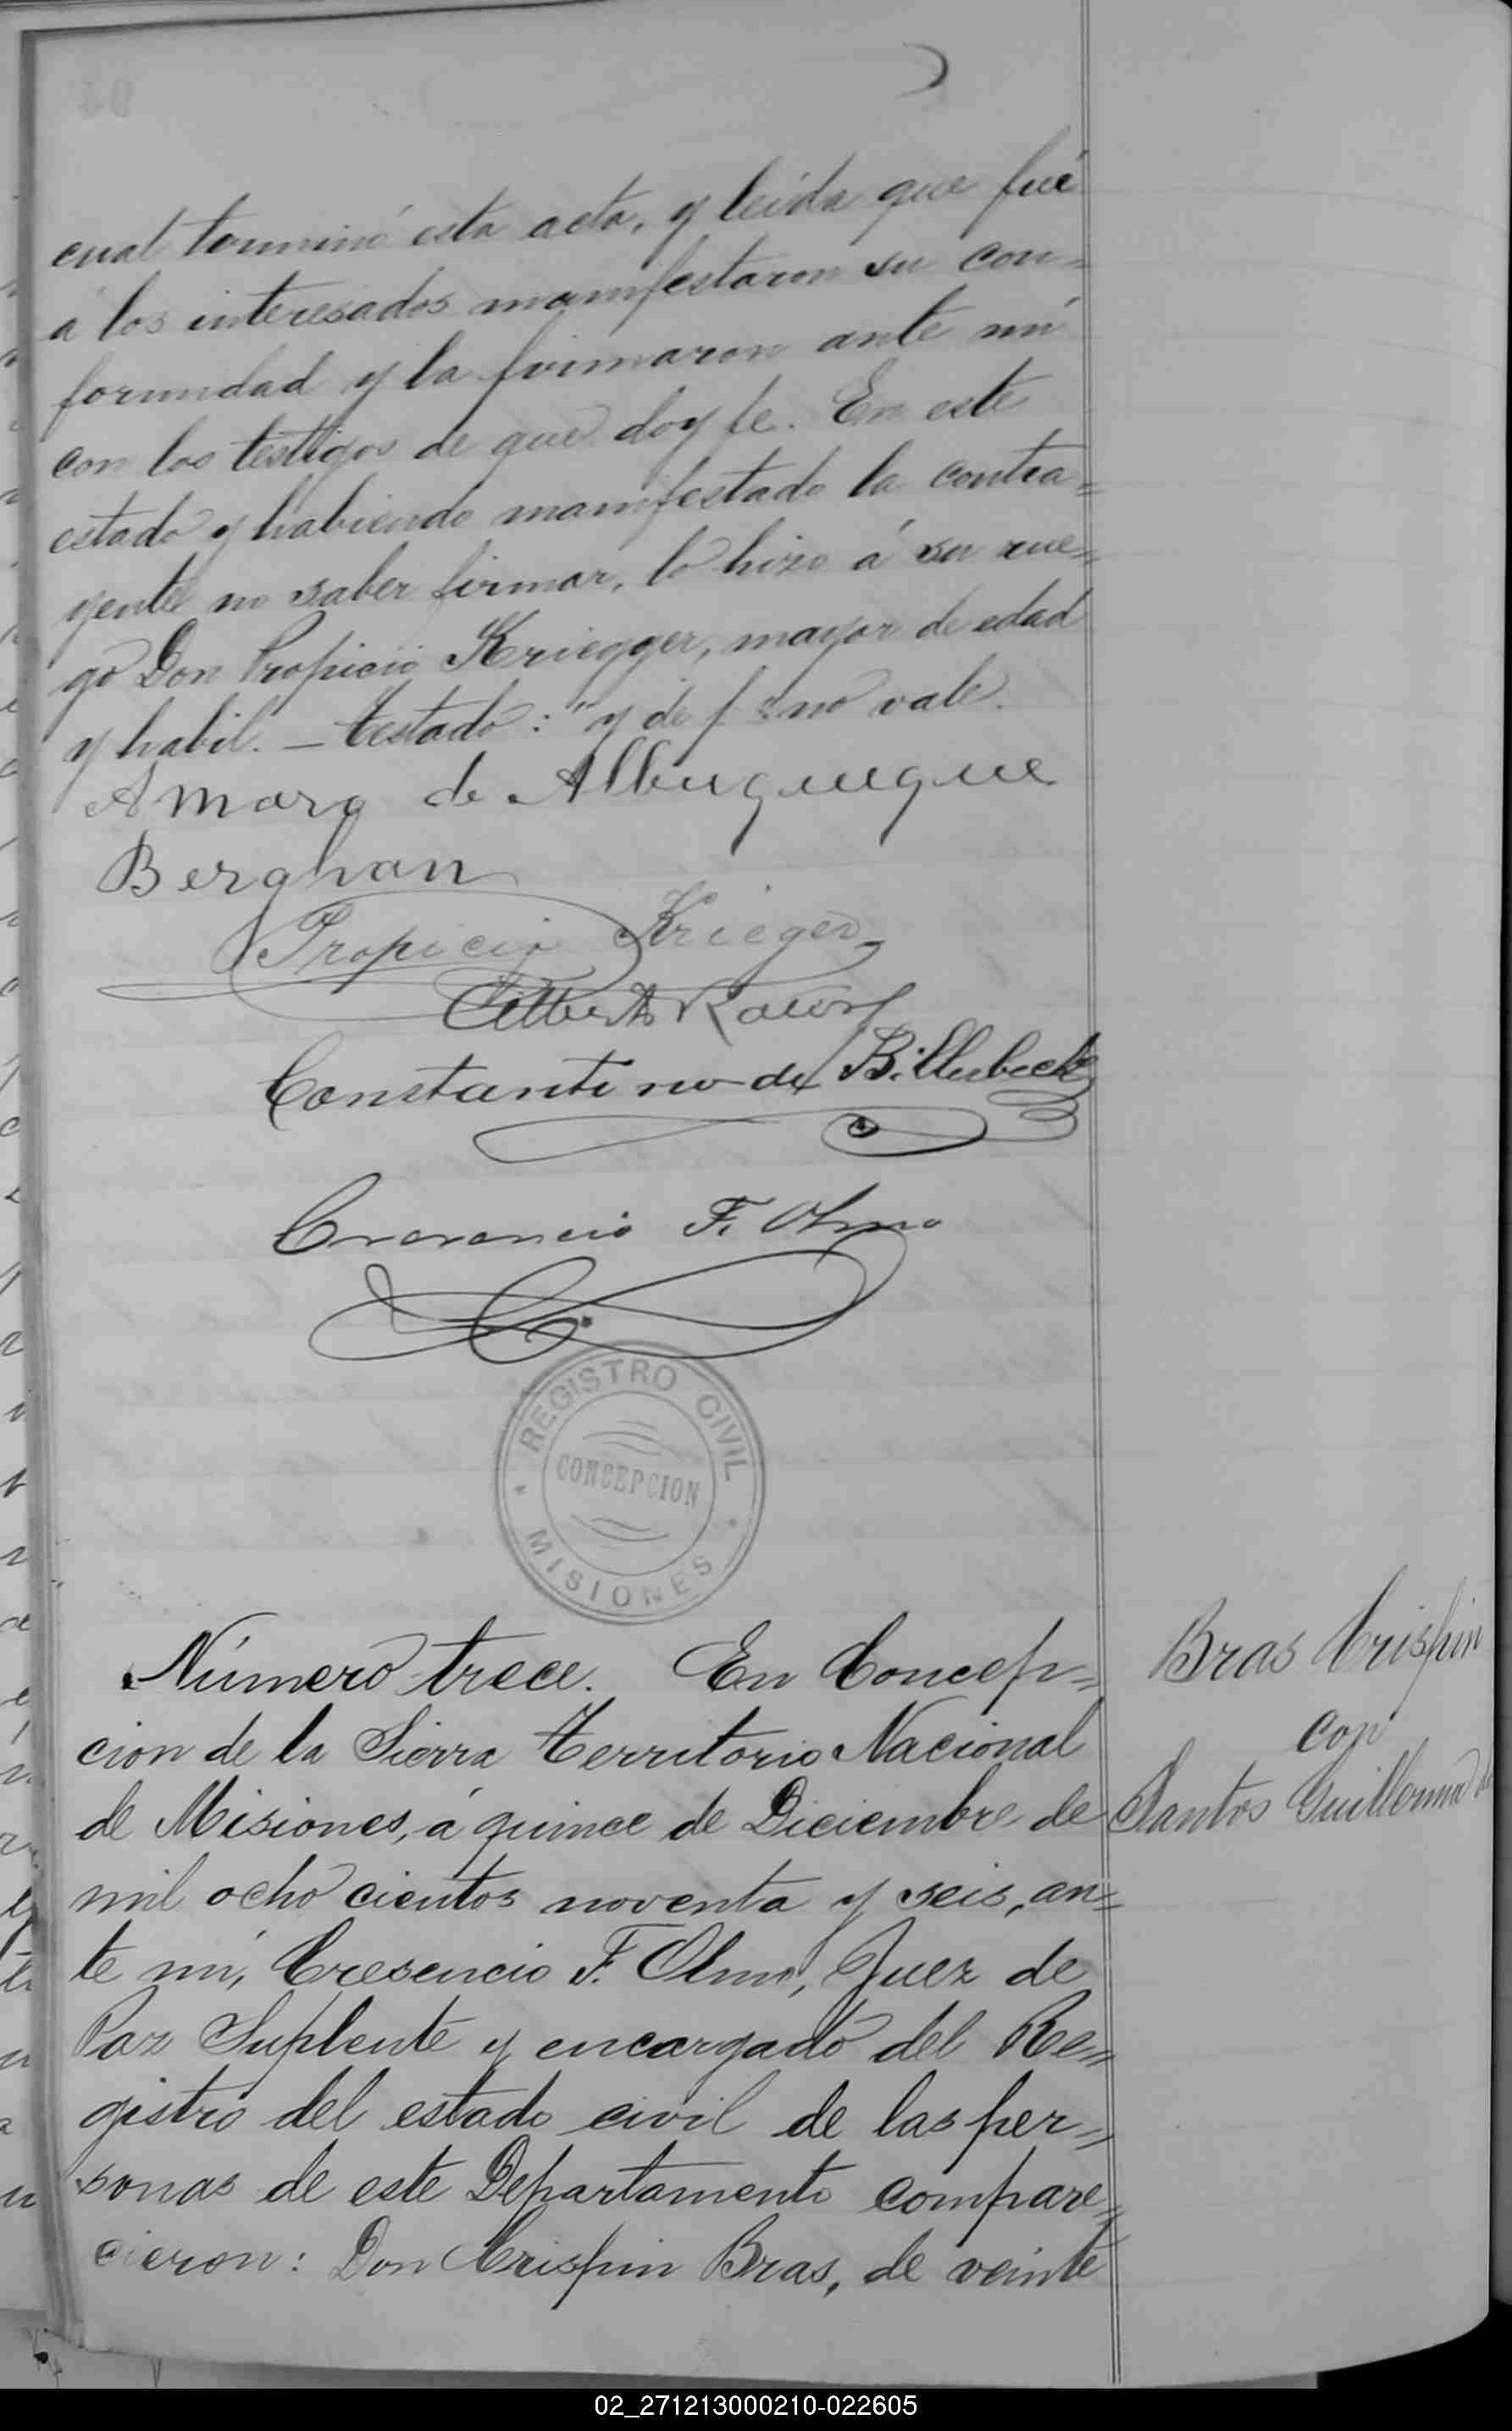 cual terminó esta acta, y leida que fué
á los interesados manifestaron su con=
formidad y la firmaron ante mí
con los testigos de que doy fe. En este
estado y habiendo manifestado la contra=
yente no saber firmar, lo hizo á su rue=
go Don Propicio Kriegger, mayor de edad
y habil. — Testado: "y de f" no vale.
Amaro de Albuquerque
Berghan
Propicio Krieger
Constantino de Billerbeck
Cresencio F. Olmo
REGISTRO CIVIL
CONCEPCION
MISIONES
Número trece. En Concep=
cion de la Sierra Territorio Nacional
de Misiones, á quince de Diciembre de
mil ocho cientos noventa y seis, an=
te mí, Cresencio F. Olmo, Juez de
Paz Suplente y encargado del Re=
gistro del estado civil de las per=
sonas de este Departamento compare=
cieron: Don Crispin Bras, de veinte
Bras Crispin
con
Santos Guillermina
02_271213000210-022605